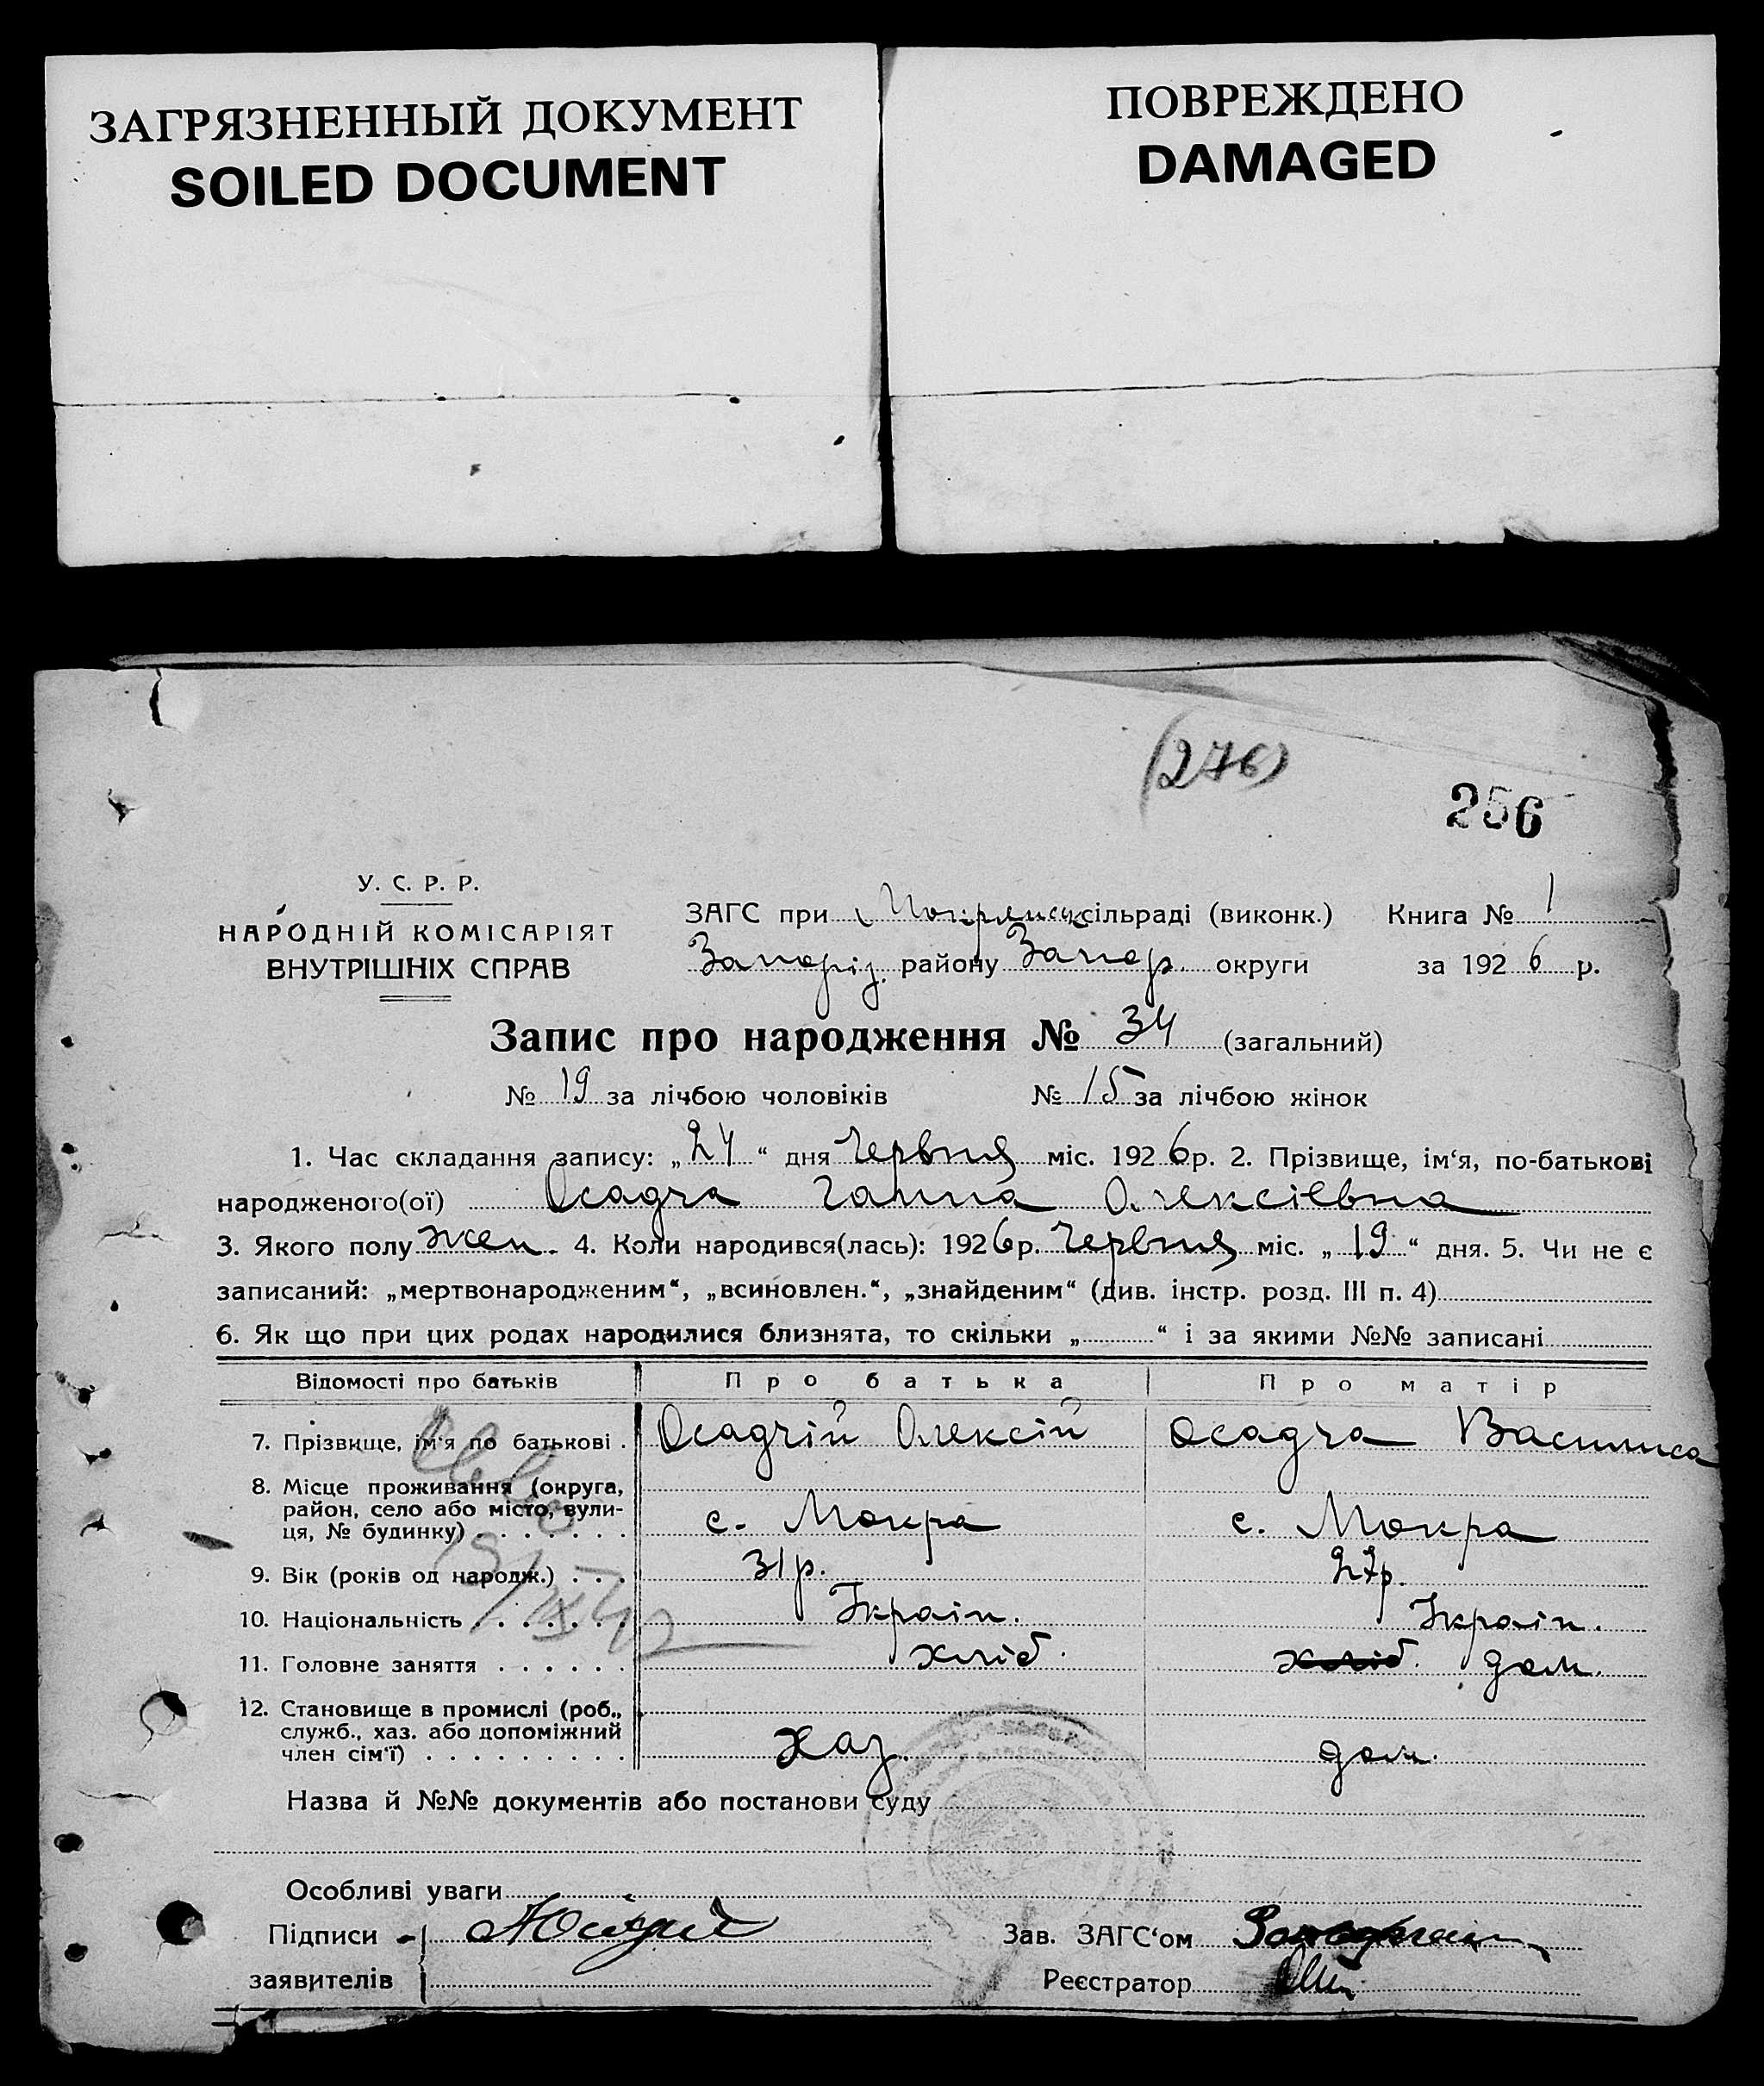 ЗАГРЯЗНЕННЫЙ ДОКУМЕНТ
SOILED DOCUMENT
ПОВРЕЖДЕНО
DAMAGED
(276)
256
У. С. Р. Р.
НАРОДНІЙ КОМІСАРІЯТ
ВНУТРІШНІХ СПРАВ
ЗАГС при Мокрянск сільраді (виконк.) Книга № 1
Запоріз. району Запор. округи за 1926 р.
Запис про народження № 34 (загальний)
№ 19 за лічбою чоловіків № 15 за лічбою жінок
1. Час складання запису: „24“ дня Червня міс. 1926р. 2. Прізвище, ім‘я, по-батькові
народженого(ої) Осадча Ганна Олексіевна
3. Якого полу жен. 4. Коли народився(лась): 1926р. Червня міс. „19“ дня. 5. Чи не є
записаний: „мертвонародженим“, „всиновлен.“, „знайденим“ (див. інстр. розд. III п. 4)
6. Як що при цих родах народилися близнята, то скільки „ “ і за якими №№ записані
Відомості про батьків Про батька Про матір
7. Прізвище, ім‘я по батькові . Осадчій Олексій Осадча Василиса
8. Місце проживання (округа,
район, село або місто, вули-
ця, № будинку) . . . . . . . с. Мокра с. Мокра
9. Вік (років од народж.) . . . 31р. 27р.
10. Національність . . . . . . Украін. Украін.
11. Головне заняття . . . . . . хліб. хліб. дом.
12. Становище в промислі (роб.,
служб., хаз. або допоміжний
член сім‘ї) . . . . . . . . . хаз. дом.
Назва й №№ документів або постанови суду
Особливі уваги
Підписи
заявителів
Зав. ЗАГС‘ом
Реєстратор